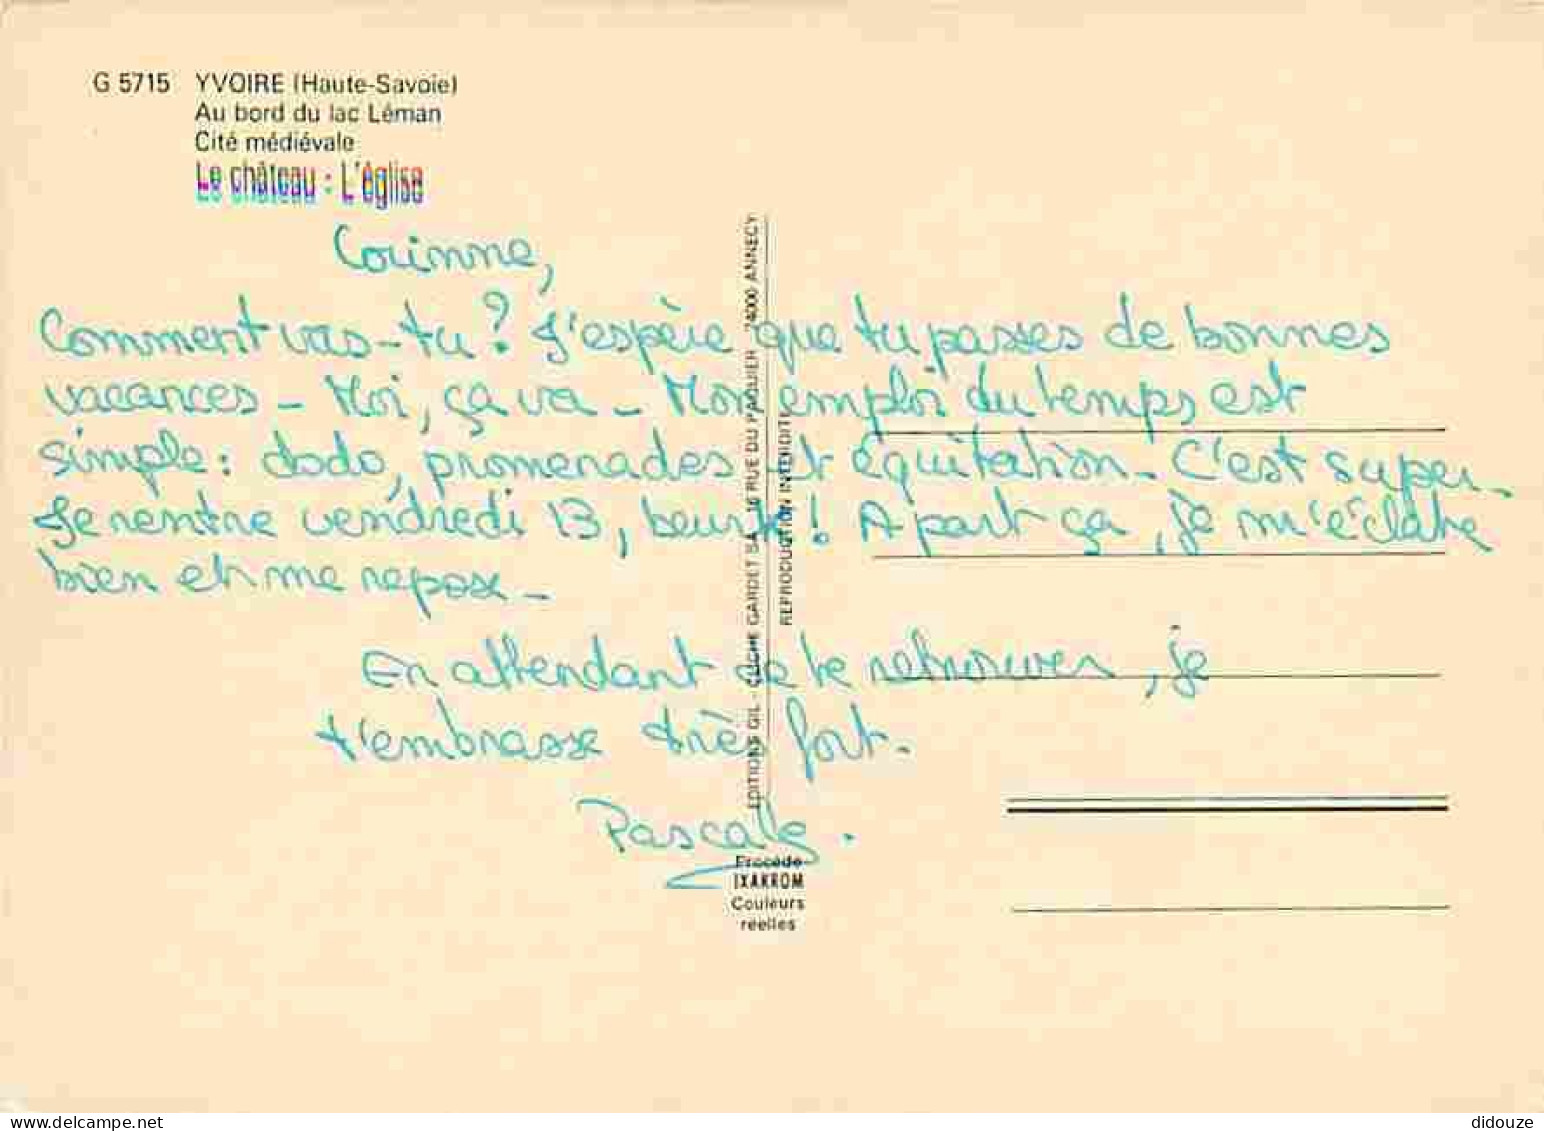 G 5715 YVOIRE (Haute-Savoie)
Au bord du lac Léman
Cité médiévale
Le château : L'église
Corinne,
Comment vas-tu ? J'espère que tu passes de bonnes
vacances - Moi, ça va - Mon emploi du temps est
simple : dodo, promenades et équitation - C'est super -
Je rentre vendredi 13, beurk ! A part ça, je m'éclate
bien et me repose -
En attendant de te retrouver, je
t'embrasse très fort.
Pascale.
EDITIONS GIL - CLICHE GARDET SA 10 RUE DU PAQUIER 74000 ANNECY
REPRODUCTION INTERDITE
Procédé
IXAKROM
Couleurs
réelles
delcampe.net
didouze